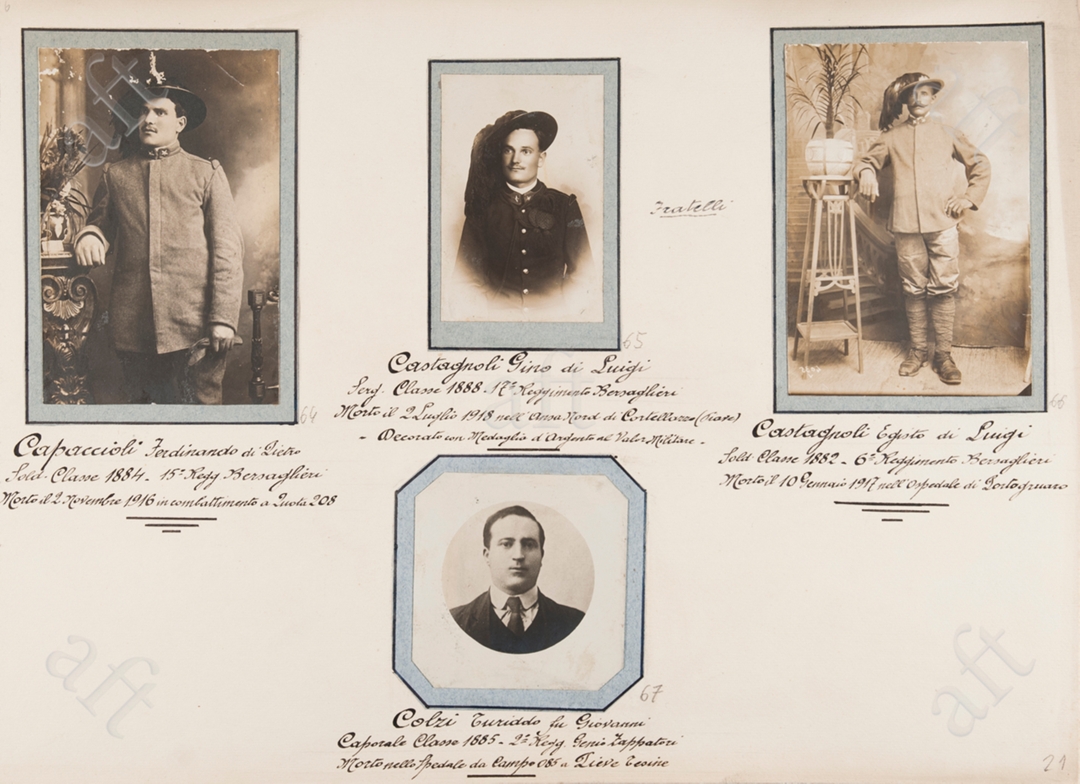 64
Capaccioli Ferdinando di Pietro
Sold. Classe 1884 - 15º Regg Bersaglieri
Morto il 2 Novembre 1916 in combattimento a Quota 208
65
Castagnoli Gino di Luigi
Serg. Classe 1888 - 17º Reggimento Bersaglieri
Morto il 2 Luglio 1918 nell'Ansa Nord di Cortellazzo (Piave)
- Decorato con Medaglia d'Argento al Valor Militare -
Fratelli
66
Castagnoli Egisto di Luigi
Sold. Classe 1882 - 6º Reggimento Bersaglieri
Morto il 10 Gennaio 1917 nell'Ospedale di Portogruaro
67
Colzi Turiddo fu Giovanni
Caporale Classe 1885 - 2º Regg. Genio Zappatori
Morto nello Spedale da Campo 085 a Pieve Tesino
21
aft
aft
aft
aft
aft